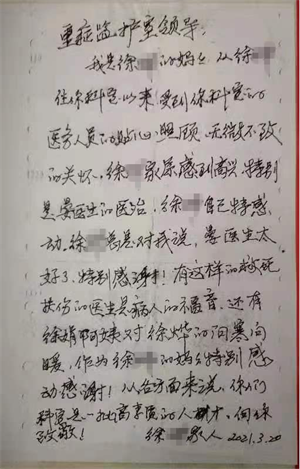 重症监护室领导:
我是徐 的妈妈,从徐
住你科室以来,受到你科室的
医务人员的贴心照顾,无微不致
的关怀,徐 家属感到高兴,特别
是 医生的医治,徐 自己特感
动,徐 总是对我说, 医生太
好了,特别感谢!有这样的救死
扶伤的医生是病人的福音,还有
徐娟阿姨对徐烨的问寒问
暖,作为徐 的妈妈特别感
动感谢!从各方面来说,你们
科室是一批高素质的人才,向你
致敬!
徐 家人 2021.3.20